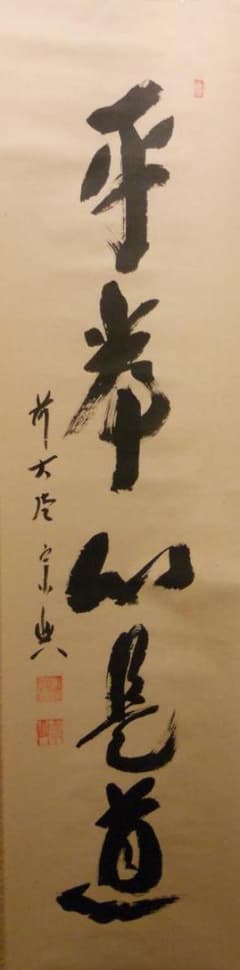 平常心是道
前大徳宗典